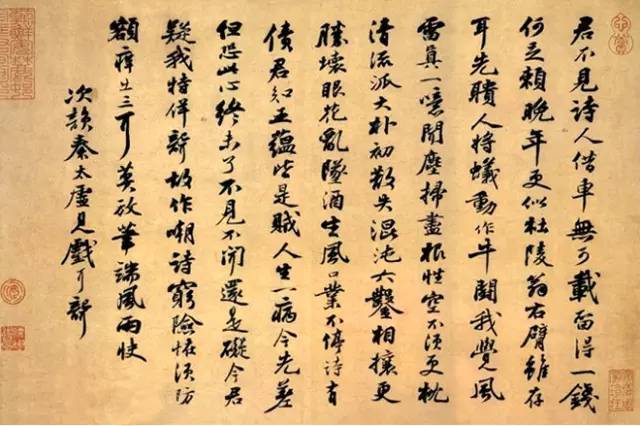 君不見詩人借車無可載留得一錢
何足賴晚年更似杜陵翁右臂雖存
耳先聵人將蟻動作牛鬪我覺風
雷真一噫聞塵掃盡根性空不須更枕
清流派大朴初散失混沌六鑿相攘更
勝壞眼花亂墜酒生風口業不停詩有
債君知五蘊皆是賊人生一病今先差
但恐此心終未了不見不聞還是礙今君
疑我特佯聾故作嘲詩窮險怪須防
額痒出三耳莫放筆端風雨快
次韻秦太虛見戲耳聾